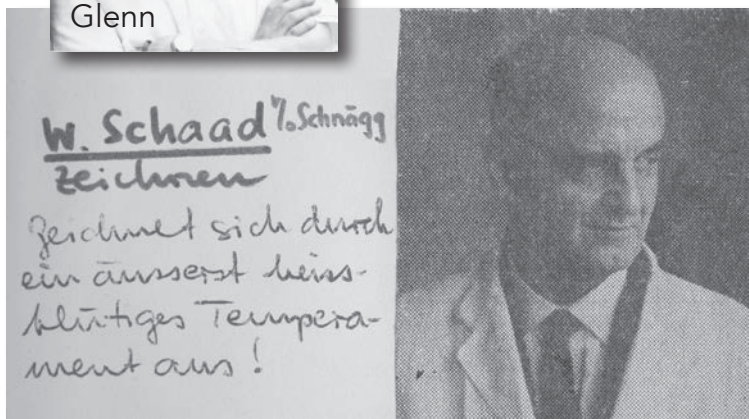 Glenn
W. Schaad v/o Schnägg
zeichnen
Zeichnet sich durch
ein äusserst heiss-
blütiges Tempera-
ment aus!